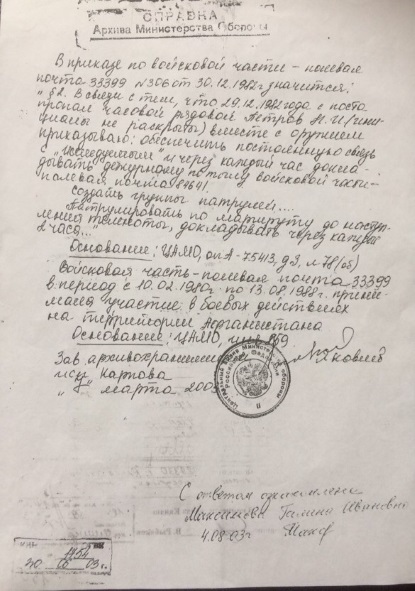 СПРАВКА
Архива Министерства Обороны
В приказе по войсковой части – полевая
почта 33399 №306 от 30.12.1982г значится:
"§2. В связи с тем, что 29.12.1982года с поста
пропал часовой рядовой Петров Н.И. (ини-
циалы не раскрыты) вместе с оружием
приказываю: обеспечить постоянную связь
с и через каждый час докла-
дывать дежурному по тылу войсковой части-
полевая почта
создать группы патрулей....
Патрулировать по маршруту до наступ-
ления темноты, докладывать через каждые
2 часа..."
Основание: ЦАМО, оп.А-75413, д.3, л.78(об)
Войсковая часть-полевая почта 33399
в период с 10.02.1980г по 13.08.1988г. прини-
мала участие в боевых действиях
на территории Афганистана
Основание: ЦАМО,
Зав архивохранилищем Яковлев
исп Карпова
марта 2003
С ответом ознакомлена
Максимова Галина Ивановна
4.08.03г
1454
03 г.